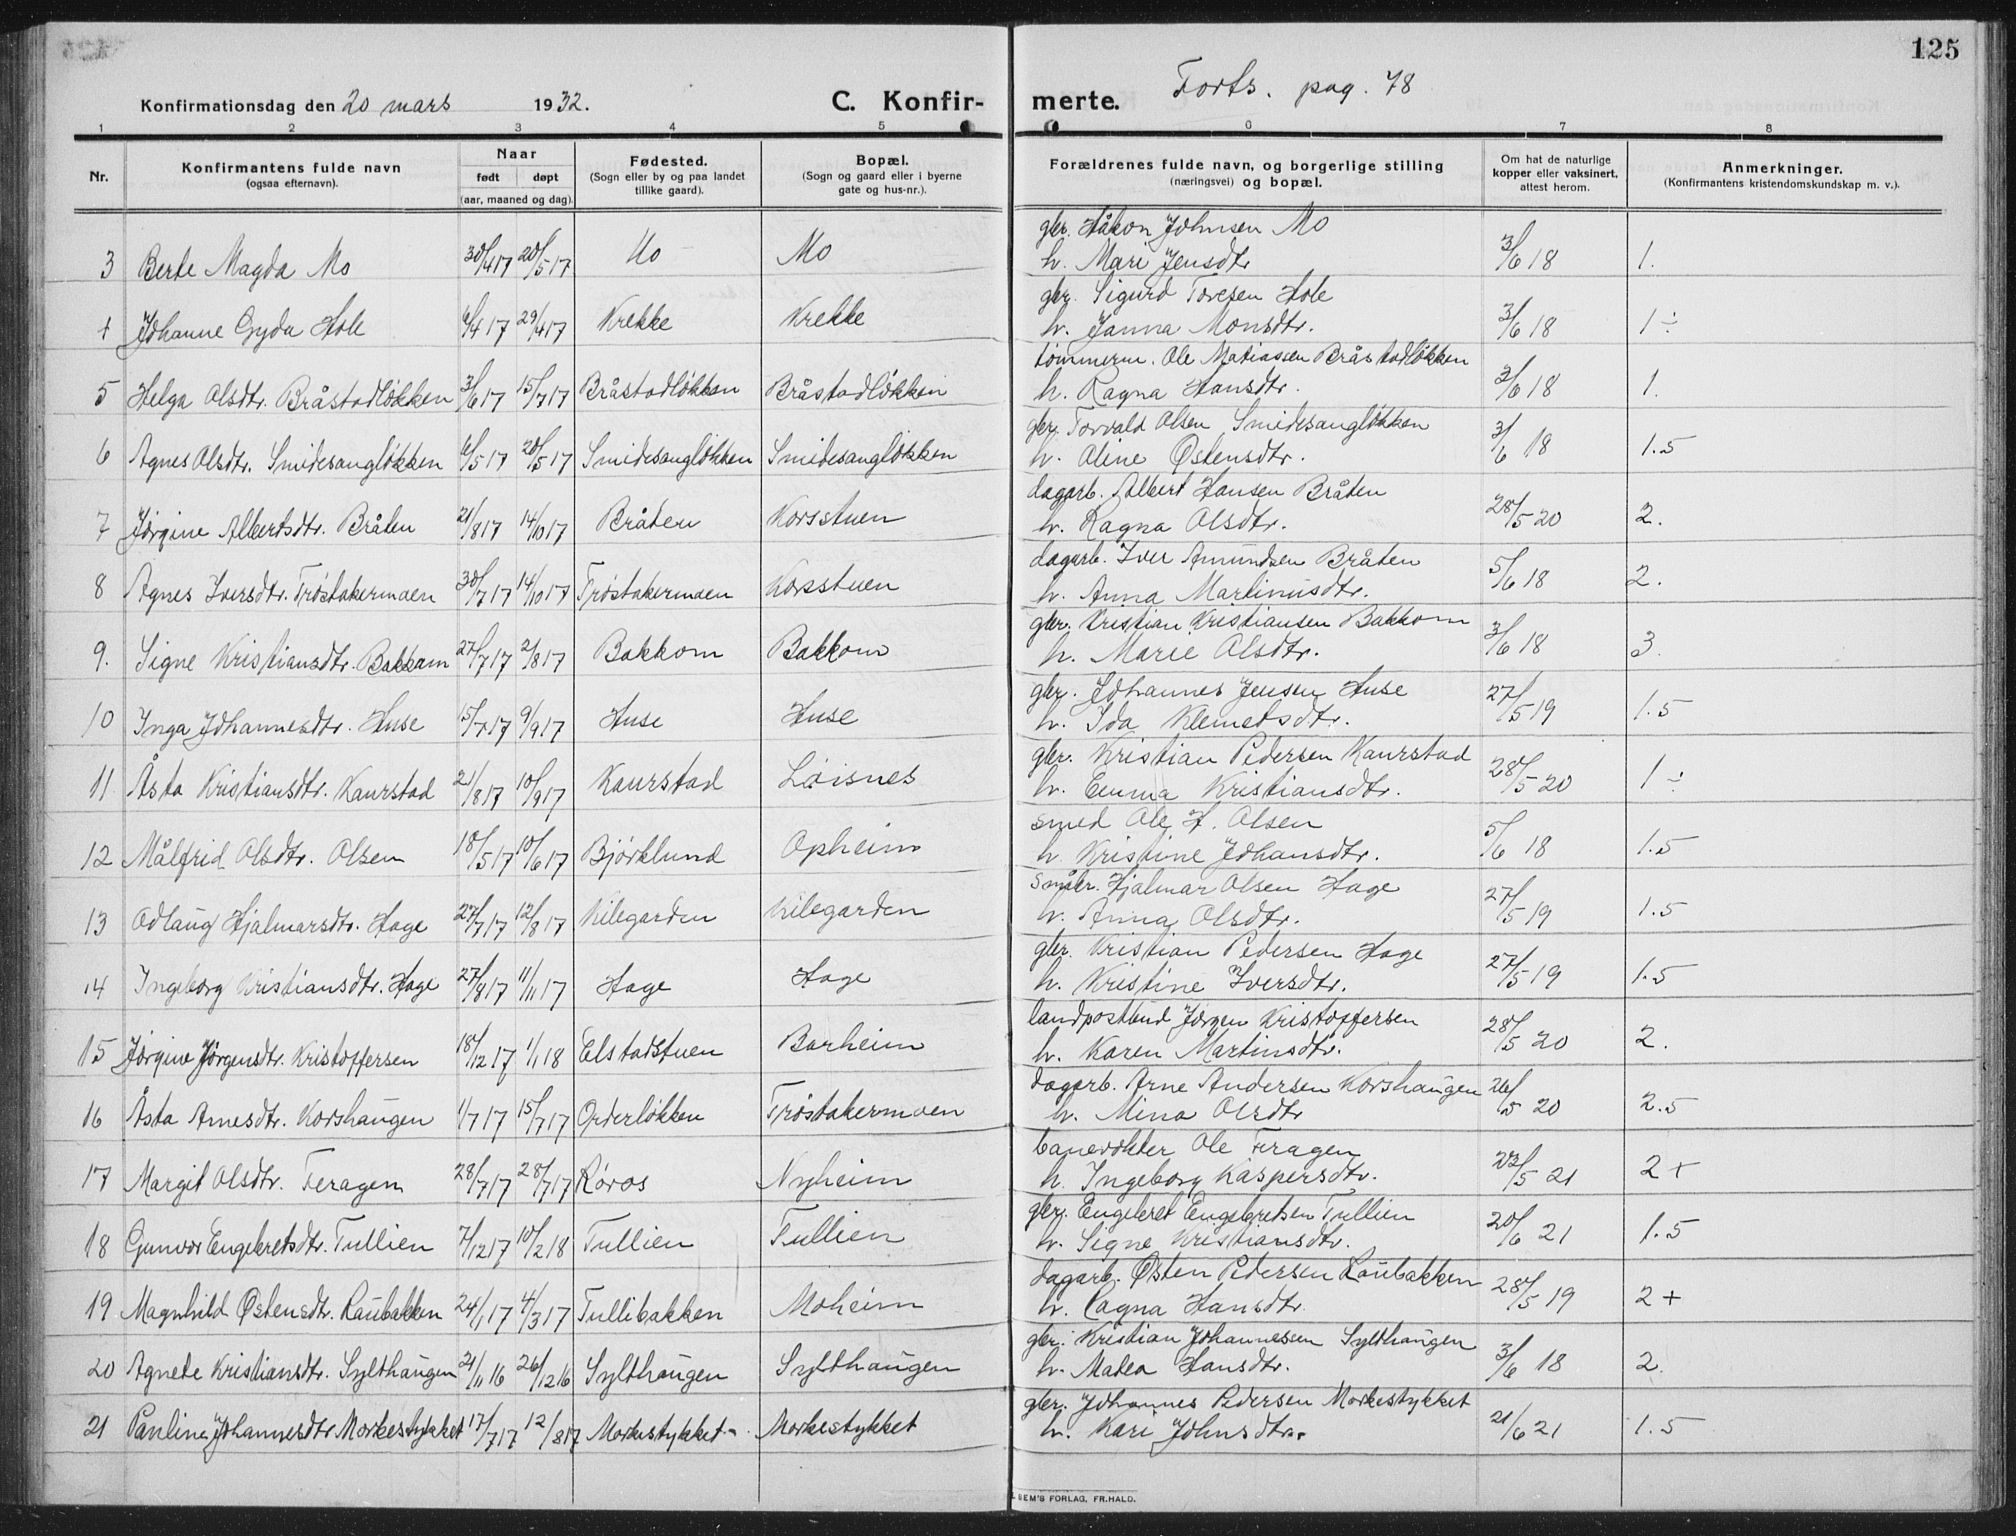 125
Konfirmationsdag den 20 mars 1932. C. Konfirmerte. Forts. pag. 78
1 2 3 4 5 6 7 8
Nr. Konfirmantens fulde navn (ogsaa efternavn). Naar født døpt (aar, maaned og dag). Fødested. (Sogn eller by og paa landet tillike gaard). Bopæl. (Sogn og gaard eller i byerne gate og hus-nr.). Forældrenes fulde navn, og borgerlige stilling (næringsvei) og bopæl. Om hat de naturlige kopper eller vaksinert, attest herom. Anmerkninger. (Konfirmantens kristendomskundskap m. v.).
gbr. Håkon Johnsen Mo
3 Berte Magda Mo 30/4 17 20/5 17 Mo Mo h. Mari Jensdtr 3/6 18 1.
gbr. Sigurd Toresen Hole
4 Johanne Gyda Hole 6/4 17 29/4 17 Krekke Krekke h. Janna Monsdtr. 3/6 18 1 ÷
tømmerm. Ole Matiassen Bråstadløkken
5 Helga Olsdtr. Bråstadløkken 3/6 17 15/7 17 Bråstadløkken Bråstadløkken h. Ragna Hansdtr. 3/6 18 1.
gbr. Torvald Olsen Smidesangløkken
6 Agnes Olsdtr. Smidesangløkken 6/5 17 20/5 17 Smidesangløkken Smidesangløkken h. Aline Østensdtr. 3/6 18 1.5
dagarb. Albert Hansen Bråten
7 Jørgine Albertsdtr. Bråten 21/8 17 14/10 17 Bråten Korsstuen h. Ragna Olsdtr. 28/5 20 2.
dagarb. Iver Amundsen Bråten
8 Agnes Iversdtr. Trøstakermoen 30/7 17 14/10 17 Trøstakermoen Korsstuen h. Anna Martinusdtr. 5/6 18 2.
gbr. Kristian Kristiansen Bakkom
9. Signe Kristiansdtr. Bakkom 27/7 17 2/8 17 Bakkom Bakkom h. Marie Olsdtr. 3/6 18 3.
gbr. Johannes Jensen Huse
10 Inga Johannesdtr. Huse 15/7 17 9/9 17 Huse Huse h. Ida Klemetsdtr. 27/5 19 1.5
gbr. Kristian Pedersen Kaurstad
11 Åsta Kristiansdtr. Kaurstad 21/8 17 10/9 17 Kaurstad Løisnes h. Emma Kristiansdtr. 28/5 20 1 ÷
smed Ole H. Olsen
12 Målfrid Olsdtr. Olsen 18/5 17 10/6 17 Bjørklund Opheim h. Kristine Johansdtr. 5/6 18 1.5
småbr. Hjalmar Olsen Hage
13 Odlaug Hjalmarsdtr. Hage 27/7 17 12/8 17 Lilegarden Lilegarden h. Anna Olsdtr. 27/5 19 1.5
gbr. Kristian Pedersen Hage
14 Ingeborg Kristiansdtr. Hage 27/8 17 11/11 17 Hage Hage h. Kristine Iversdtr. 27/5 19 1.5
landpostbud Jørgen Kristoffersen
15 Jørgine Jørgensdtr. Kristoffersen 18/12 17 1/1 18 Elstadstuen Barheim h. Karen Martinsdtr. 28/5 20 2.
dagarb. Arne Andersen Korshaugen
16 Åsta Arnesdtr. Korshaugen 1/7 17 15/7 17 Opderløkken Trøstakermoen h. Mina Olsdtr 26/5 20 2.5
banevokter Ole Feragen
17 Margit Olsdtr. Feragen 28/7 17 28/7 17 Røros Nyheim h. Ingeborg Kaspersdtr. /5 21 2 +
gbr. Engebret Engebretsen Tullien
18 Gunvor Engebretsdtr. Tullien 7/12 17 10/2 18 Tullien Tullien h. Signe Kristiansdtr. 20/6 21 1.5
dagarb. Østen Pedersen Raubakken
19 Magnhild Østensdtr. Raubakken 24/1 17 4/3 17 Tullibakken Moheim h. Ragna Hansdtr. 28/5 19 2 +
gbr. Kristian Johannessen Sylthaugen
20 Agnete Kristiansdtr. Sylthaugen 21/11 16 26/12 16 Sylthaugen Sylthaugen h. Matea Hansdtr. 3/6 18 2.
gbr. Johannes Pedersen Morkestykket
21 Pauline Johannesdtr Morkestykket 17/7 17 12/8 17 Morkestykket Morkestykket h. Kari Johnsdtr. 21/6 21 1.5
SEM'S FORLAG, FR.HALD.